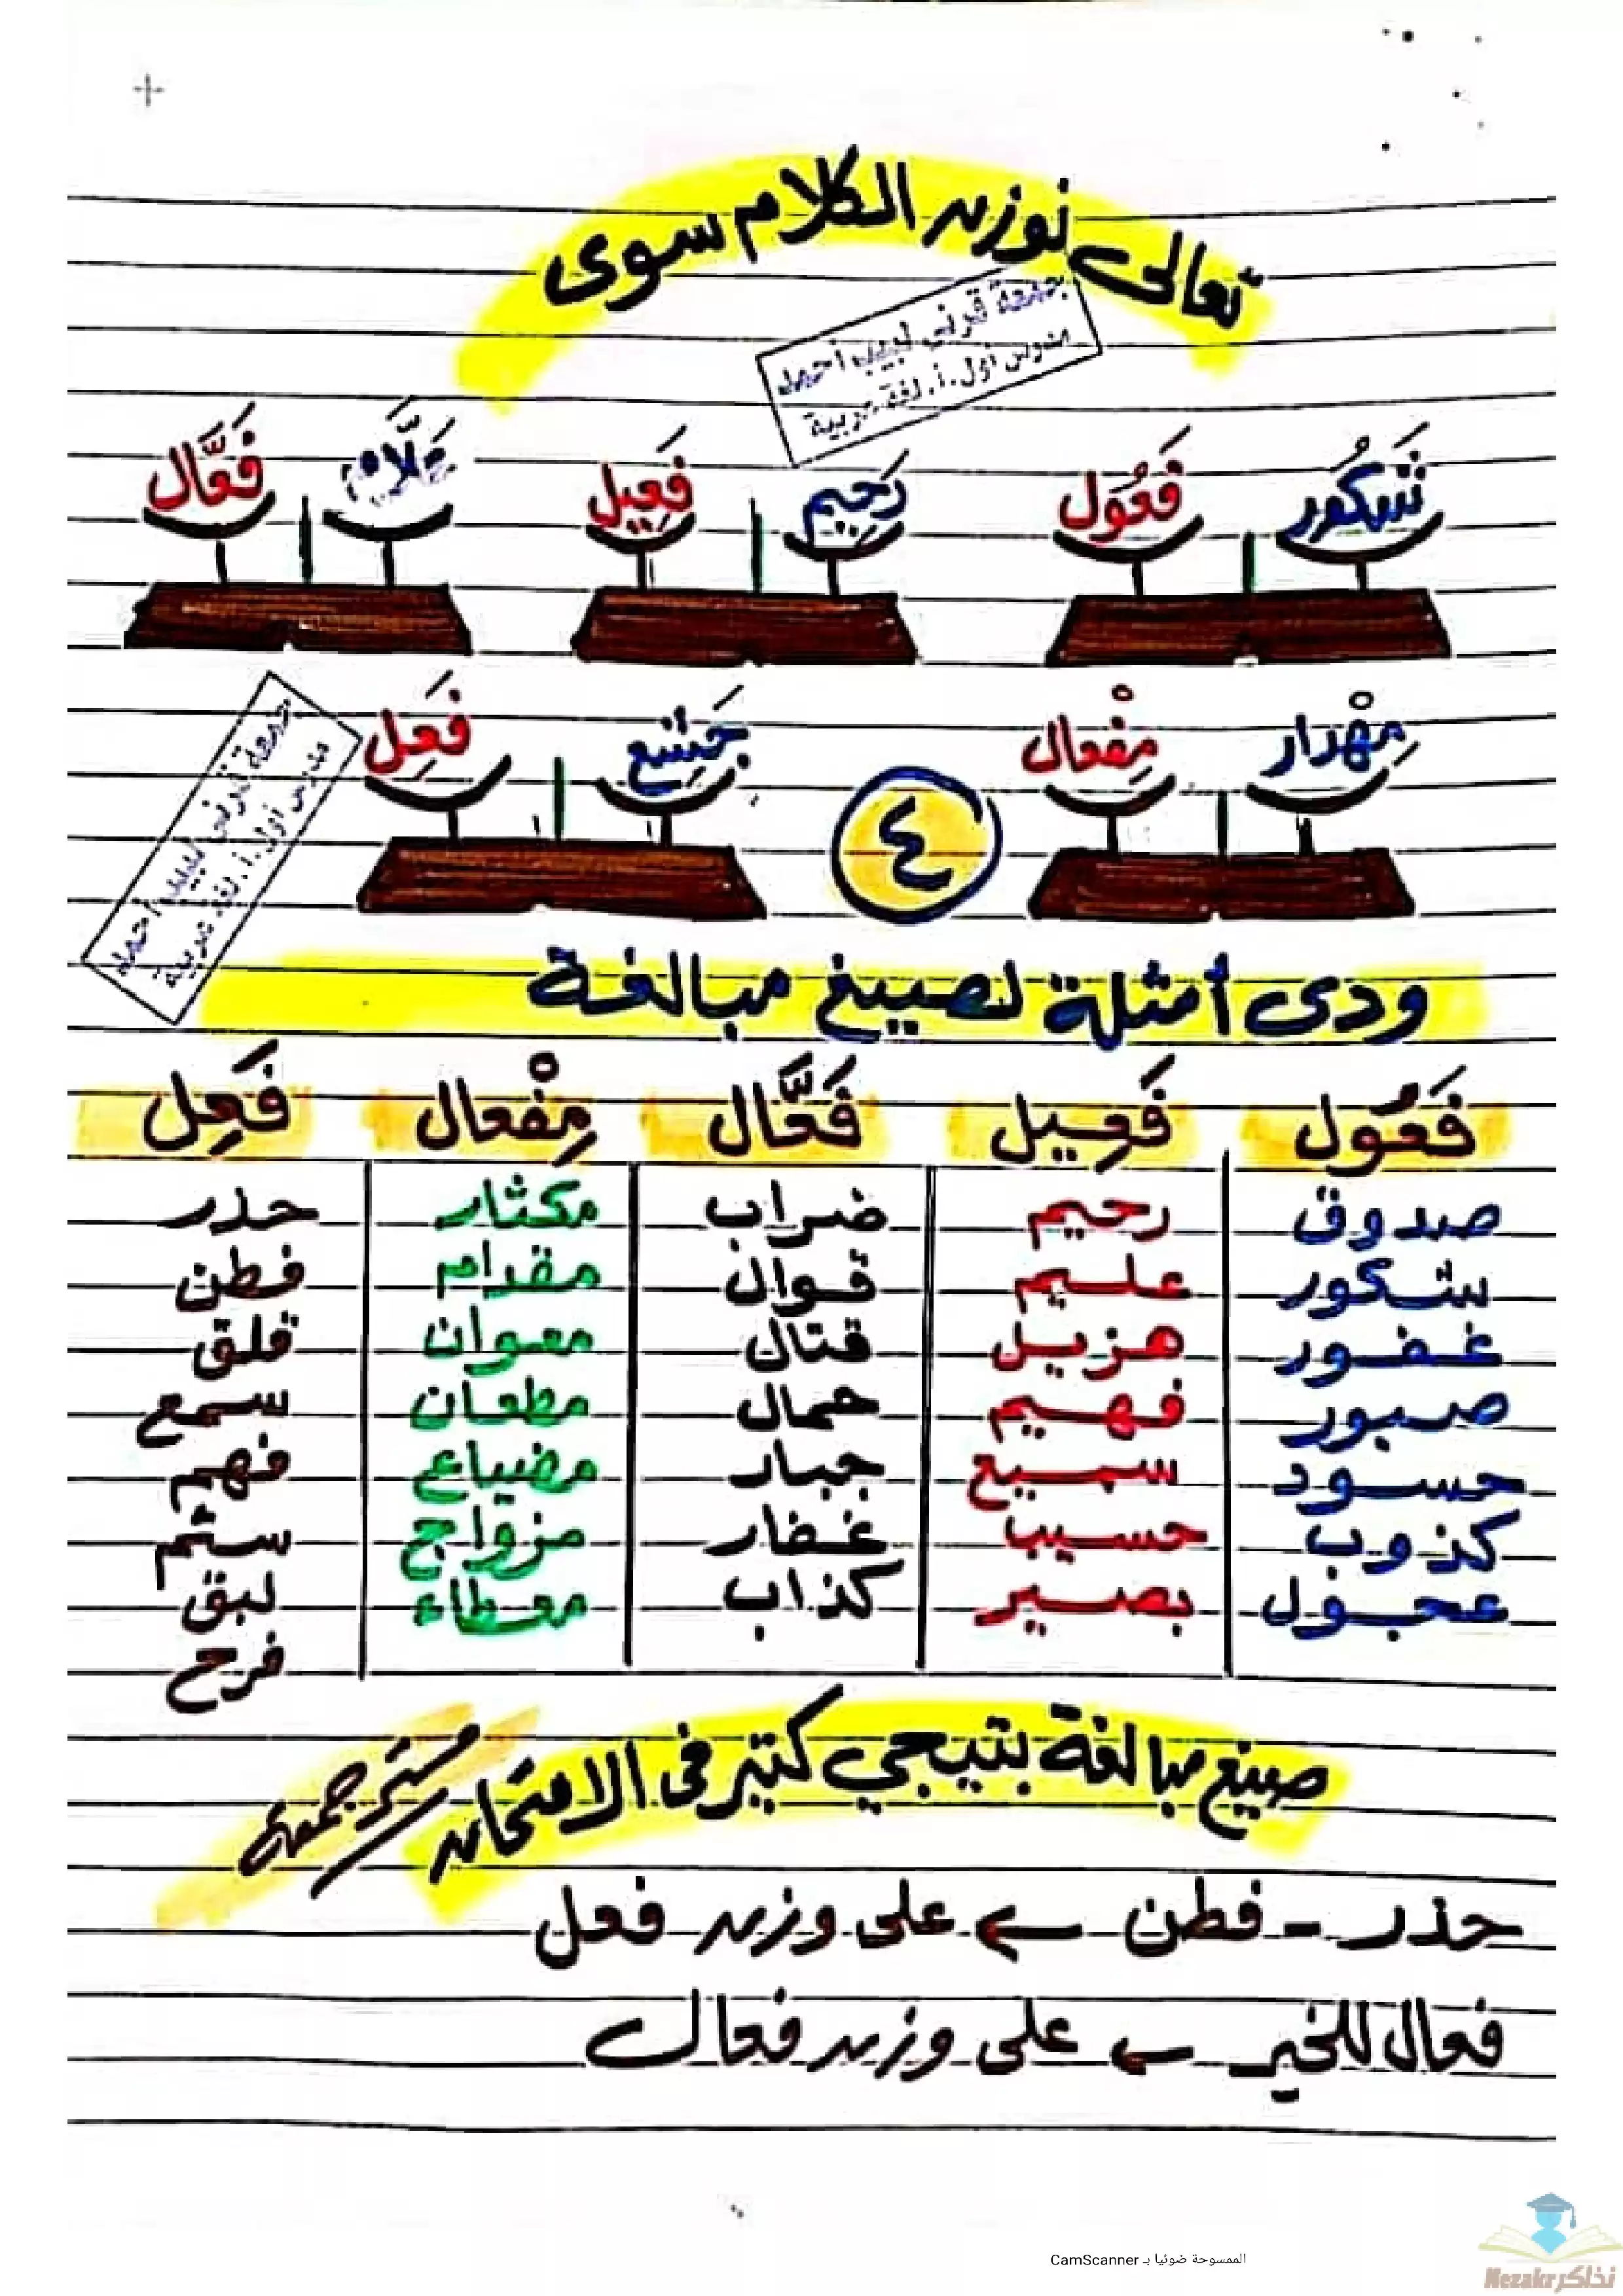 تعالى نوزن الكلام سوى
جمعة قرني لبيب أحمد
مدرس أول.أ. لغة عربية
شَكُور فَعُول رَحِيم فَعِيل عَلَّام فَعَّال
مِهْدار مِفْعال جَشِع فَعِل
٤
جمعة قرني لبيب أحمد
مدرس أول.أ. لغة عربية
ودى أمثلة لصيغ مبالغة
فَعُول فَعِيل فَعَّال مِفْعال فَعِل
صدوق رحيم ضراب مكثار حذر
شكور عليم قوال مقدام فطن
غفور هزيل قتال معوان قلق
صبور فهيم حمال مطعان سمع
حسود سميع جبار مضياع فهم
كذوب حسيب غفار مزواج
عجول بصير كذاب معطاء لبق
فرح
صيغ مبالغة بتيجي كتير فى الامتحان
مستر جمعة
حذر - فطن ← على وزن فعل
فعال للخير ← على وزن فعال
الممسوحة ضوئيا بـ CamScanner
نذاكر Nezakr